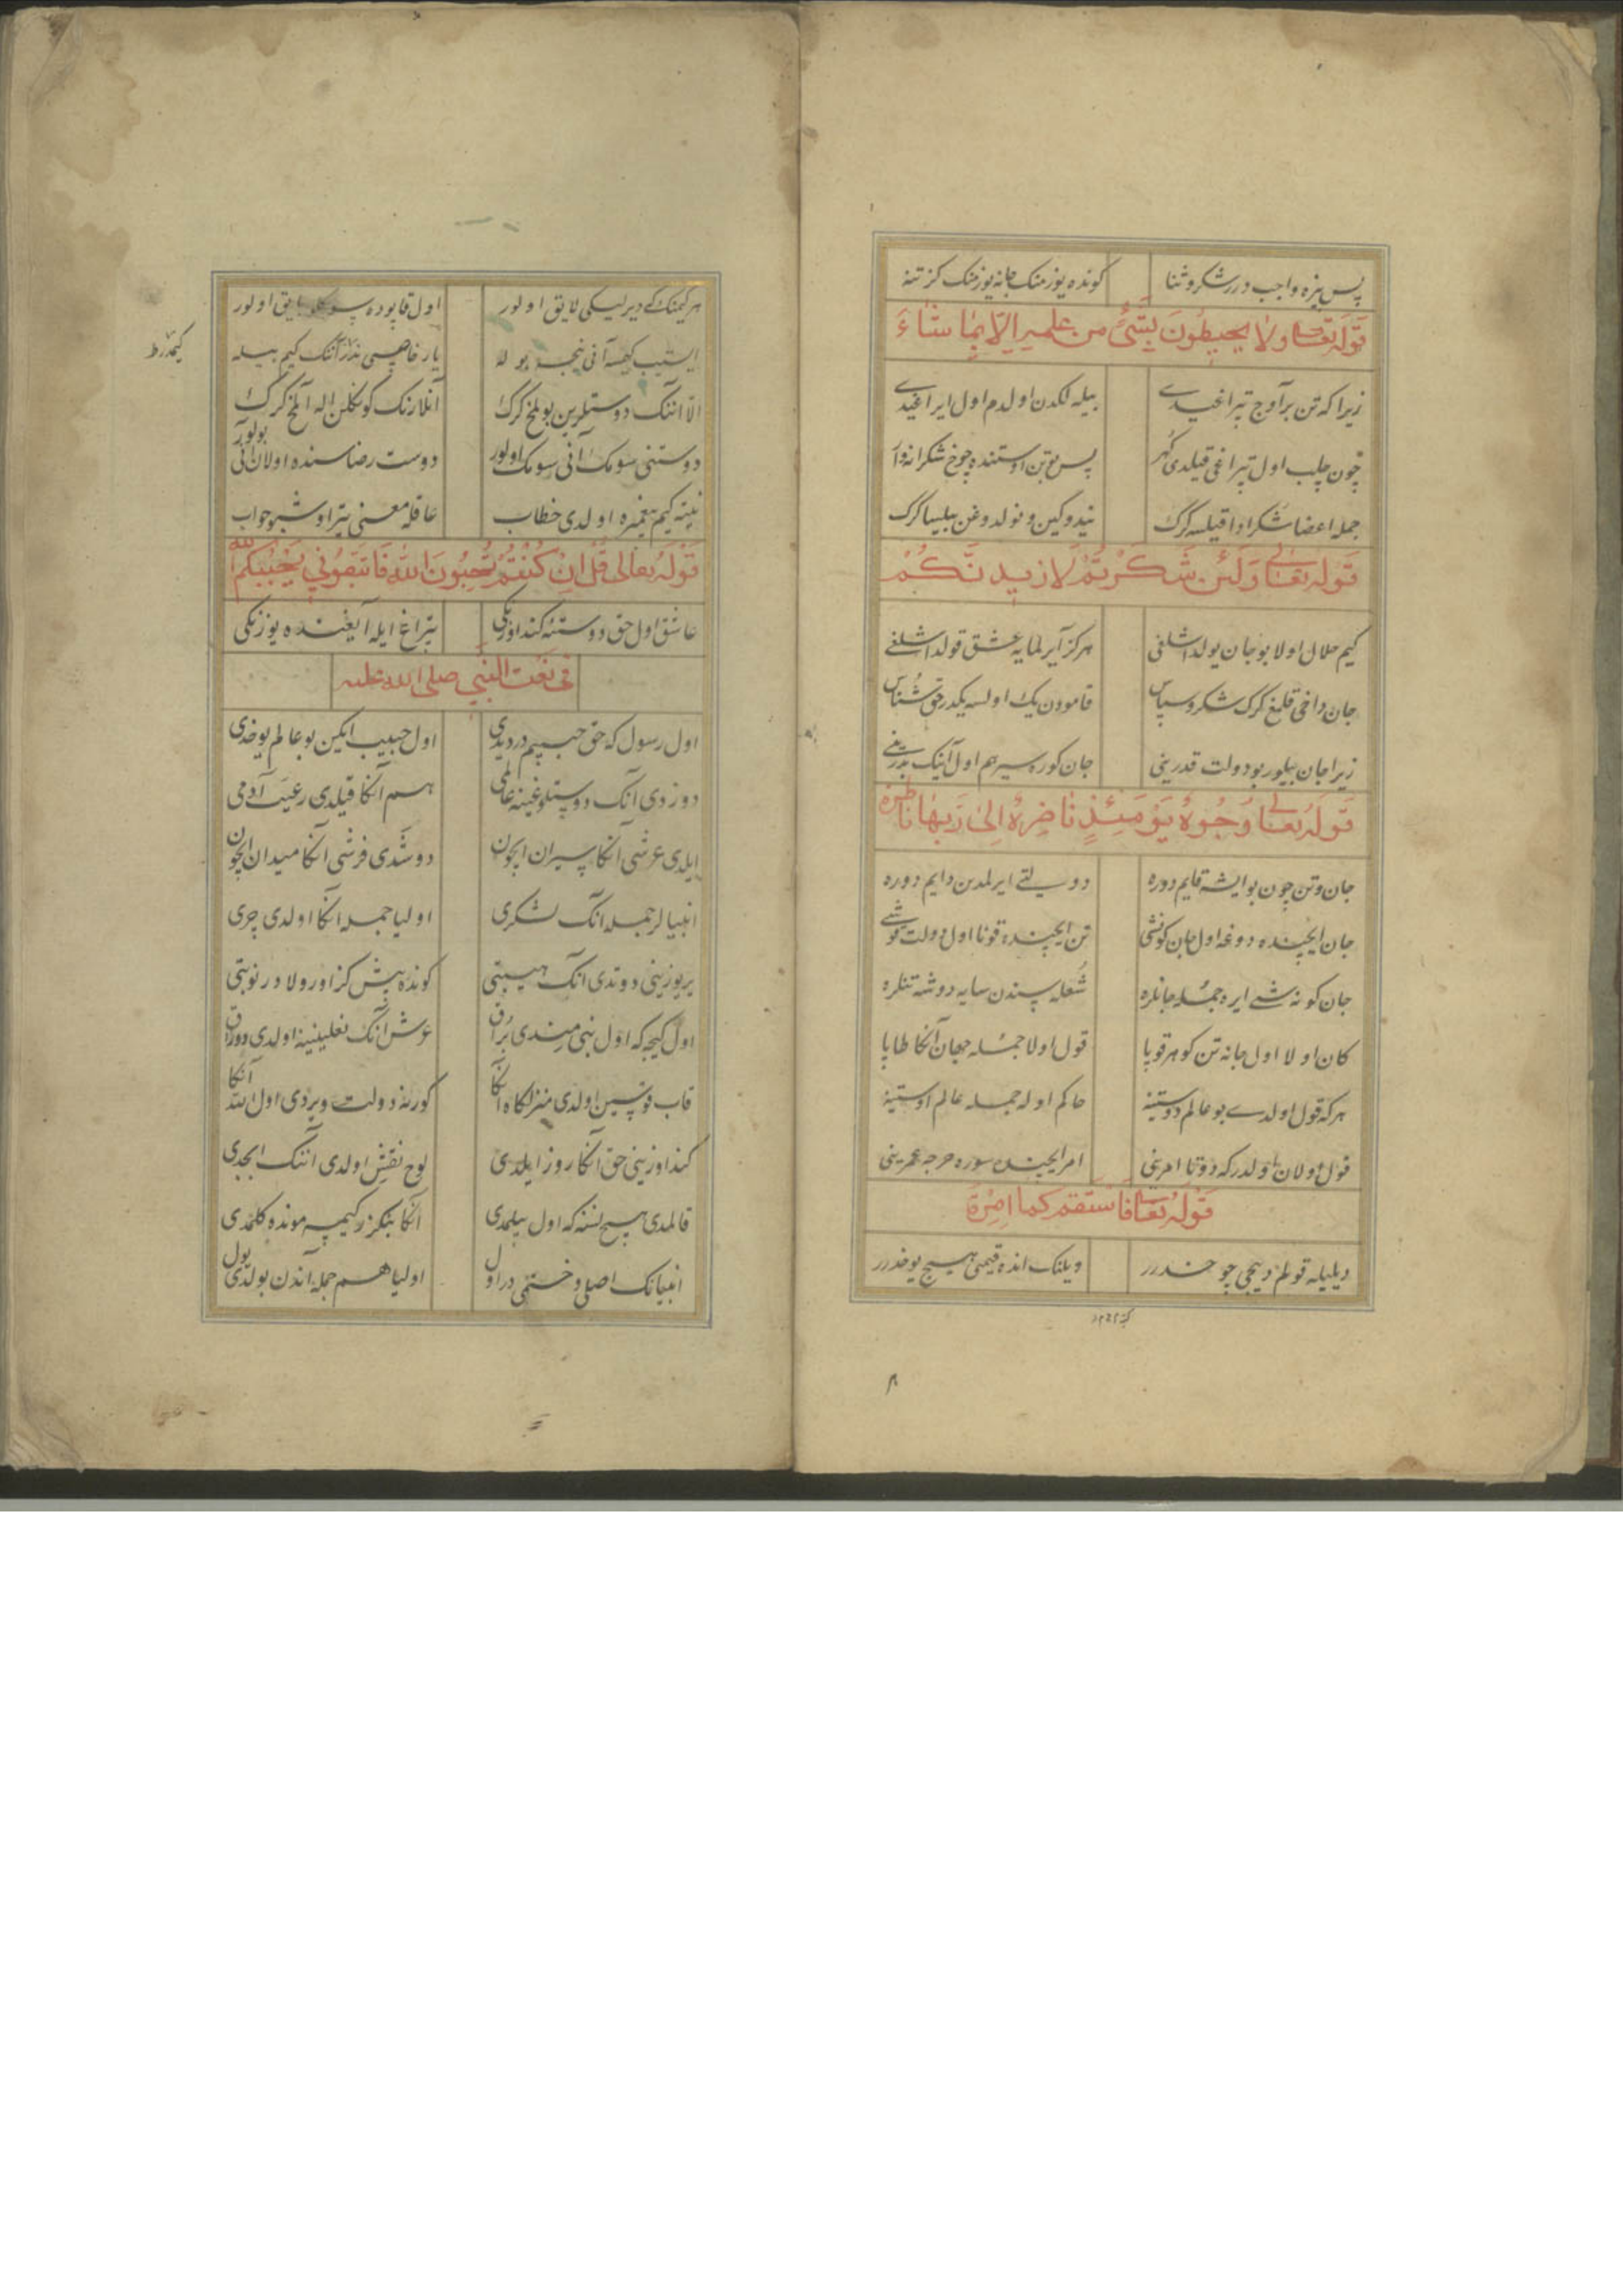 پس بزه واجب درر شکر و ثنا کونده یوز منک جانه یوز منک کز تنه
قوله تعالی ولا یحیطون بشیء من علمه الا بما شاء
زیرا که تن بر آوج تپراغیدی بیله لکدن اولدم اول ایراغیدی
چون چلب اول تپراغی قیلدی کهر پس بوتن اوستنده چوخ شکرانه وار
جمله اعضا شکر اوا قیلسه کرک نیدوکین و نولدوغن بیلسا کرک
قوله تعالی ولئن شکرتم لازیدنکم
کیم حلال اولا بو جان یولداشلغی هرکز آیرلمایه عشق قولداشلغی
جان داخی قلمغ کرک شکر و سپاس قامودن یک اولسه یکدر حق شناس
زیرا جان بیلور بو دولت قدرینی جان کوره سیر هم اول آینک بدرینی
قوله تعالی وجوه یومئذ ناضرة الی ربها ناظره
جان و تن چون بو ایشه قایم دوره دولتی ایرلمدین دایم دوره
جان ایچنده دوغه اول جان کونشی تن ایچنده قونا اول دولت قوشی
جان کونشی ایره جمله جانلره شعله سندن سایه دوشه تنلره
کان اولا اول جانه تن کوهر قوپا قول اولا جمله جهان آنکا طاپا
هرکه قول اولدی بو عالم دوستینه حاکم اوله جمله عالم اوستینه
قول اولان اولدرکه دوتا امرینی امر ایچنده سوره خرجه عمرینی
قوله تعالی فاستقم کما امرت
دیلیله قولم دییجی چوخدرر دیلنک انده قیمتی هیچ یوخدرر
هر کیمنک کی دیرلیکی لایق اولور اول قاپوده بایق اولور
ایستیب کیمسه آنی نیجه بوله یار خاصی ندر آننک کیم بیله
الا اننک دوستلرین بولمخ کرک آنلارنک کونکلن اله آلمخ کرک
دوستنی سومک آنی سومک اولور دوست رضاسنده اولان آنی بولور
نیته کیم پیغمبره اولدی خطاب عاقله معنی یتر اوشبو جواب
قوله تعالی قل ان کنتم تحبون الله فاتبعونی یحببکم الله
عاشق اول حق دوستنه کنداوزنکی تپراغ ایله آیغنده یوزنکی
فی نعت النبی صلی الله علیه
اول رسول که حق حبیبم دردیدی اول حبیب ایکین بو عالم یوخدی
دوزدی آنک دوستلوغینه عالمی هم آنکا قیلدی رعیت آدمی
ایلدی عرشی آنکا سیران ایچون دوشدی فرشی آنکا میدان ایچون
انبیالر جمله آنک لشکری اولیا جمله آنکا اولدی چری
یر یوزینی دوتدی آنک هیبتی کونده بیش کز اورولادر نوبتی
اول کیجه که اول نبی میندی براق عرش آنک نعلینینه اولدی دوراق
قاب قوسین اولدی منزلکاه آنکا کورنه دولت ویردی اول الله آنکا
کنداوزینی حق آنکا روز ایلدی لوح نقش اولدی آننک ابجدی
قالمدی هیچ نسنه که اول بیلمدی آنکا بنکزر کیمسه مونده کلمدی
انبیانک اصلی و ختمی دراول اولیا هم جمله آندن بولدی یول